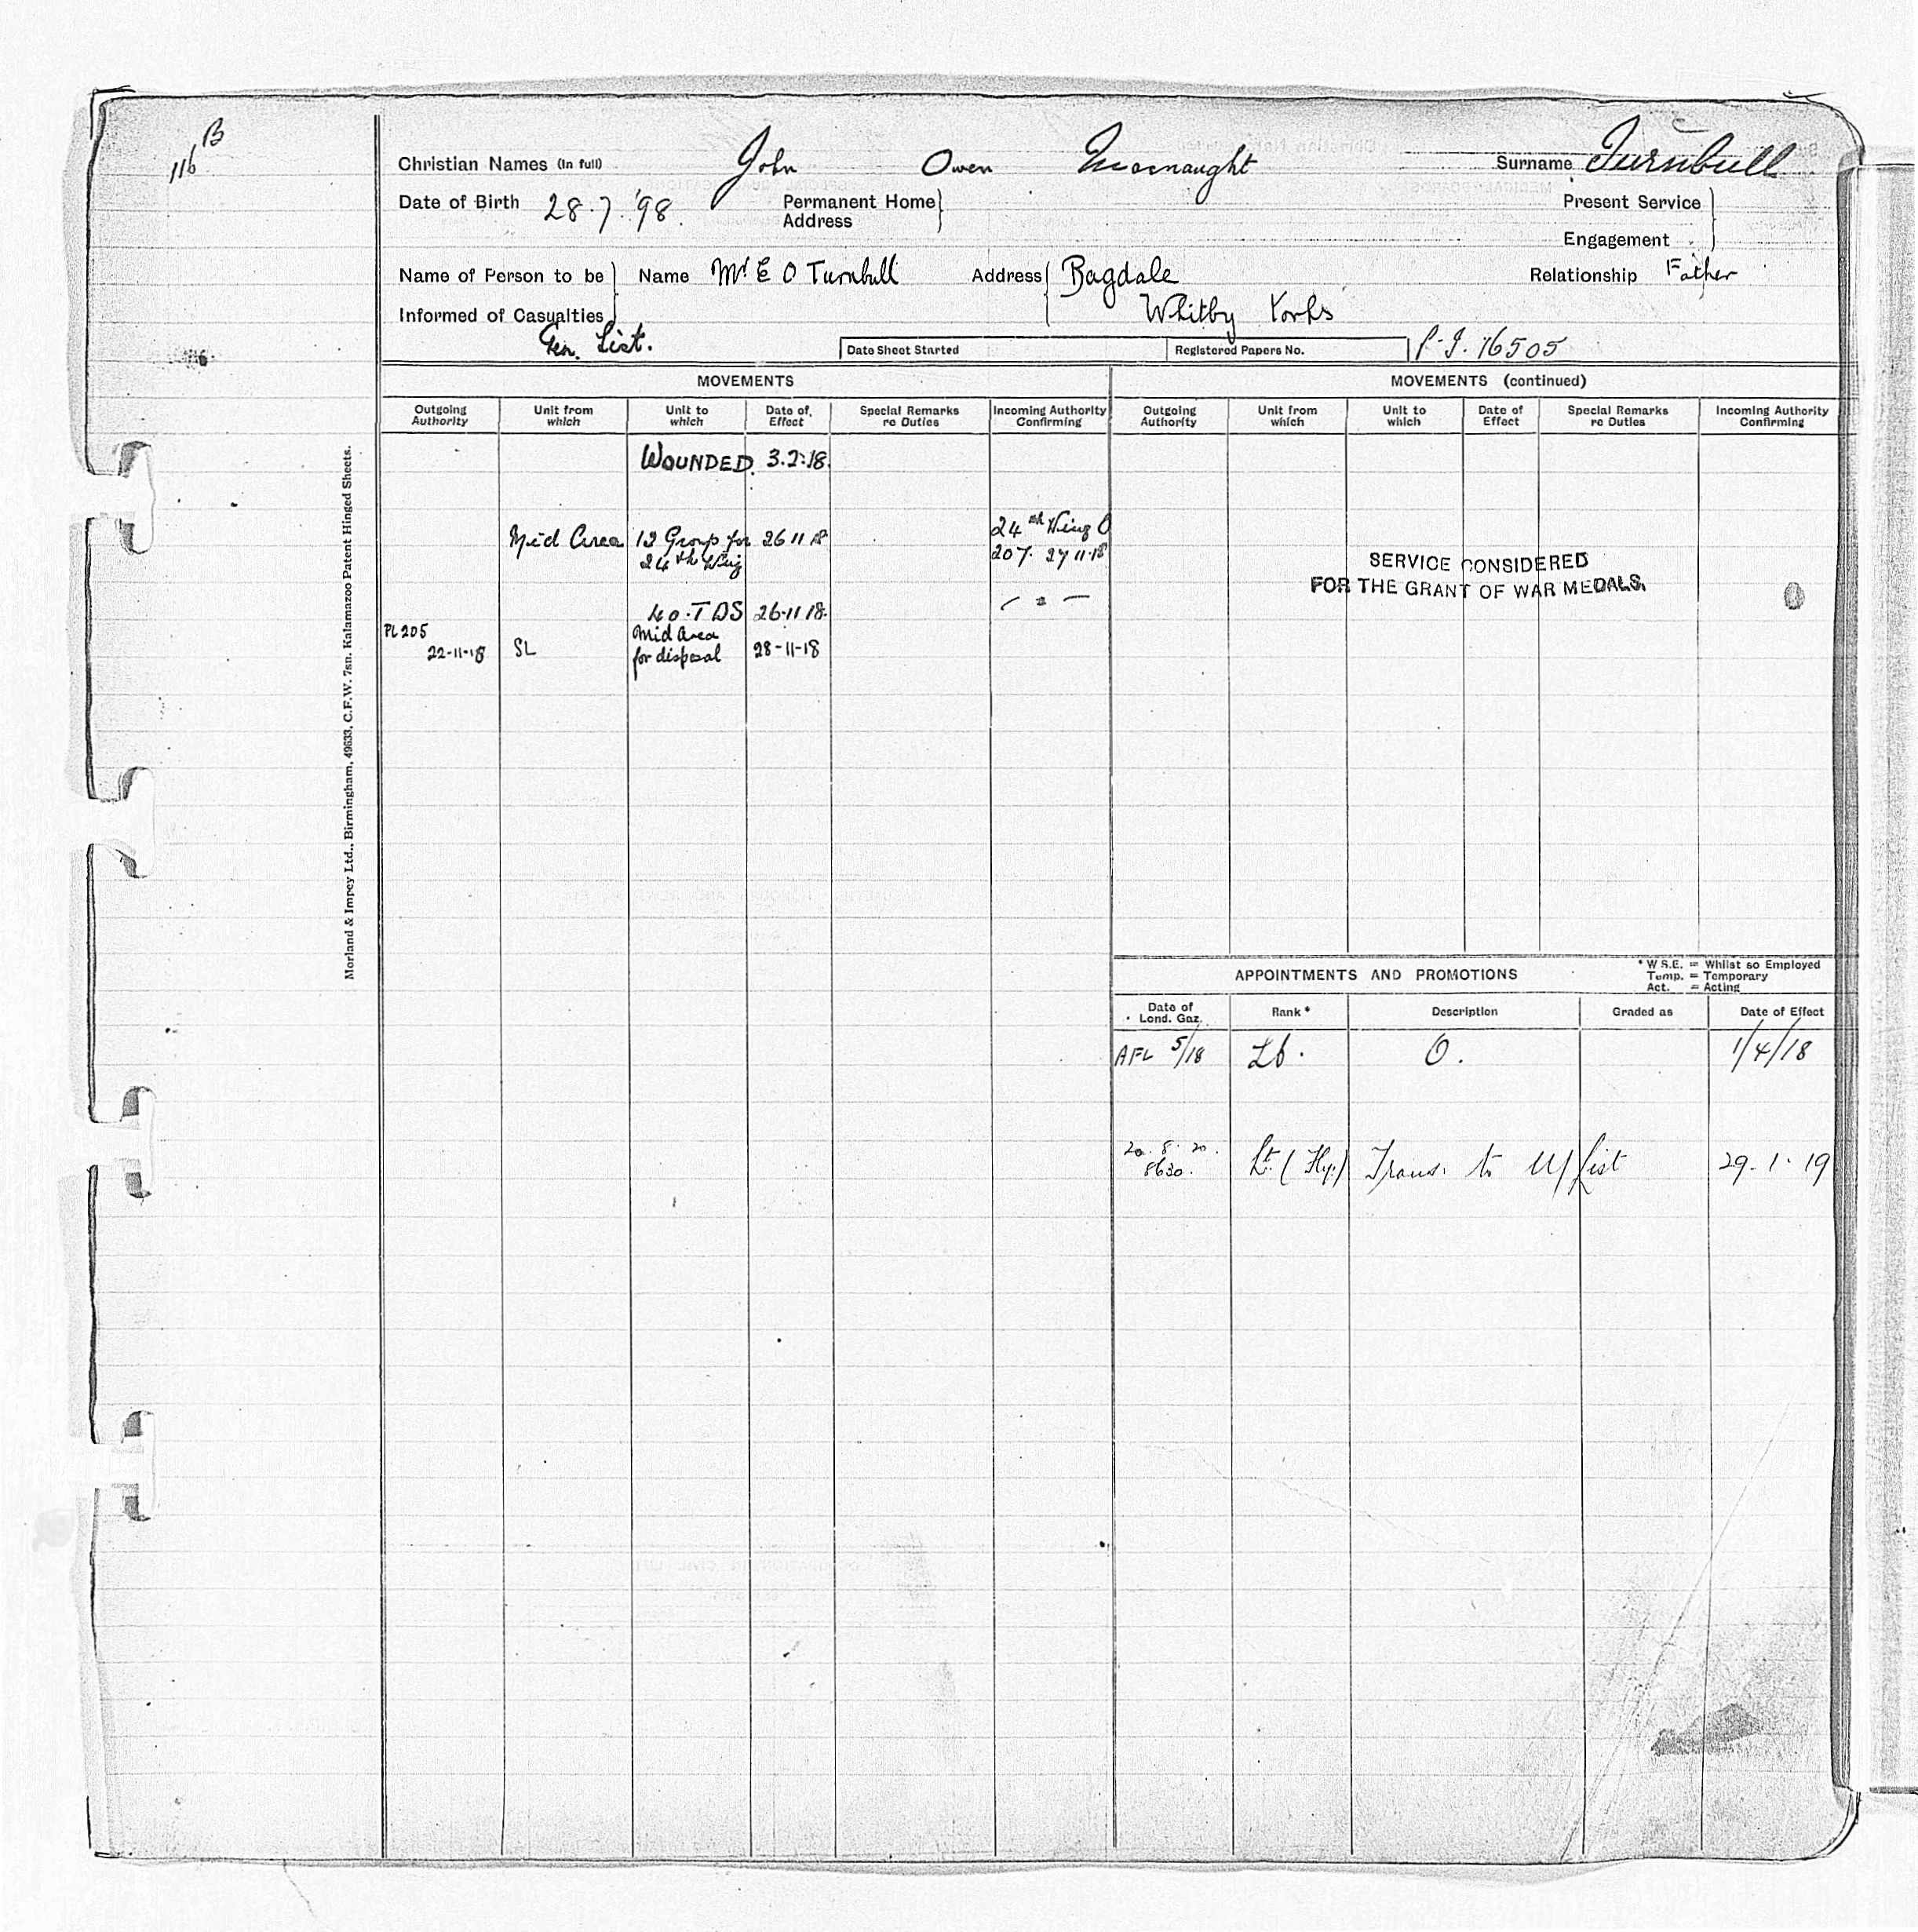 116 B
Christian Names (In full) John Owen Macnaught Surname Turnbull
Date of Birth 28.7.'98. Permanent Home Address Present Service
Engagement
Name of Person to be Informed of Casualties Name Mr E O Turnbull Address Bagdale Relationship Father
Whitby Yorks
Gen. List. Date Sheet Started Registered Papers No. P.I. 16505
MOVEMENTS MOVEMENTS (continued)
Outgoing Authority Unit from which Unit to which Date of Effect Special Remarks re Duties Incoming Authority Confirming Outgoing Authority Unit from which Unit to which Date of Effect Special Remarks re Duties Incoming Authority Confirming
WOUNDED. 3.2.18.
Mid Area 12 Group for 26 11 18 24th Wing O
24th Wing 207. 27 11.18
SERVICE CONSIDERED
FOR THE GRANT OF WAR MEDALS.
40.TDS 26.11 18. - " -
PL205 Mid Area
22-11-18 SL for disposal 28-11-18
Morland & Impey Ltd., Birmingham, 49633, C.F.W. 7sn. Kalamazoo Patent Hinged Sheets.
APPOINTMENTS AND PROMOTIONS
* W.S.E. = Whilst so Employed
Temp. = Temporary
Act. = Acting
Date of Lond. Gaz. Rank * Description Graded as Date of Effect
AFL 5/18 Lt. O. 1/4/18
20.8.20. Lt. (Hy.) Trans. to U/List 29.1.19
8630.